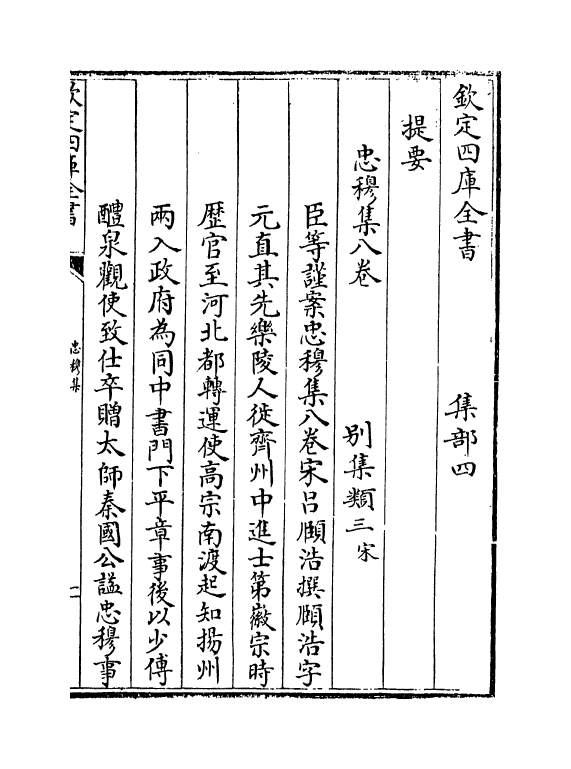 欽定四庫全書 集部四
提要
忠穆集八卷 別集類三宋
臣等謹案忠穆集八卷宋吕頤浩撰頤浩字
元直其先樂陵人徙齊州中進士第徽宗時
歴官至河北都轉運使高宗南渡起知揚州
兩入政府為同中書門下平章事後以少傅
醴泉觀使致仕卒贈太師秦國公諡忠穆事
欽定四庫全書
忠穆集